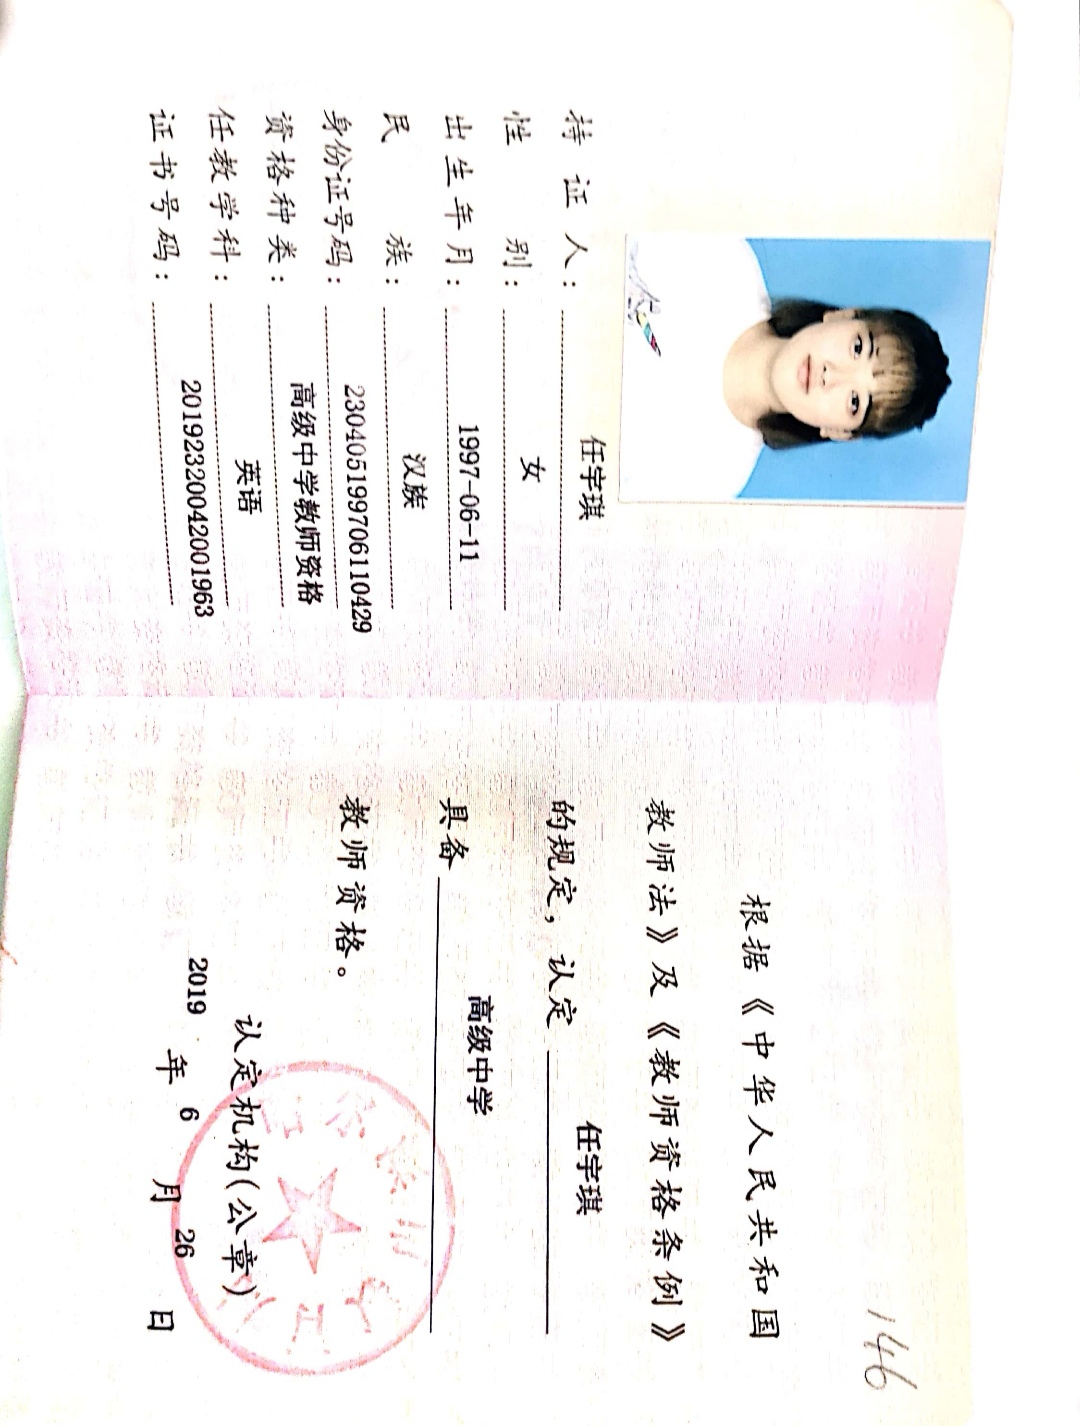 持证人：任宇琪
性别：女
出生年月：1997-06-11
民族：汉族
身份证号码：230405199706110429
资格种类：高级中学教师资格
任教学科：英语
证书号码：20192320042001963
146
根据《中华人民共和国
教师法》及《教师资格条例》
的规定，认定 任宇琪
具备 高级中学
教师资格。
认定机构(公章)
2019年6月26日